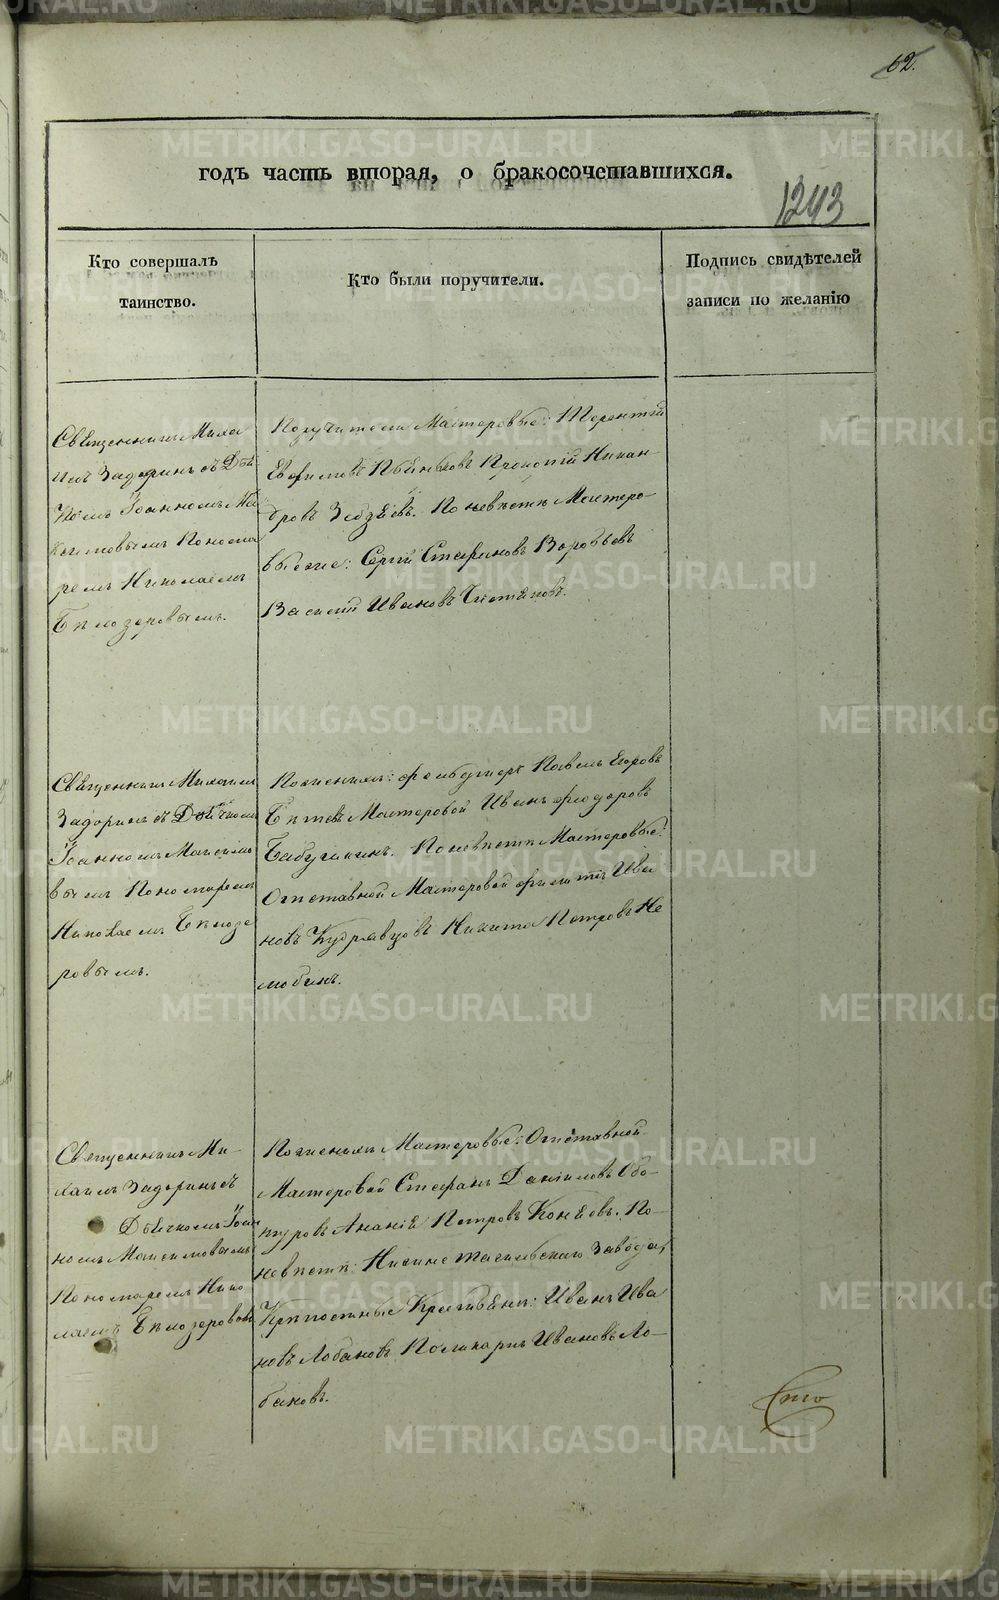 62.
годъ часть вторая, о бракосочетавшихся.
1243
Кто совершалъ
таинство.
Кто были поручители.
Подпись свидѣтелей
записи по желанію
Священникъ Миха
илъ Задоринъ съ Дья
Іоанномъ Ма
ксимовымъ Понома
ремъ Николаемъ
Бѣлозеровымъ.
Поручители Мастеровые: Терентій
Прокопій Никан
дровъ По невѣстѣ Мастеро-
вые: Сергій Стефановъ Воробьевъ
Василій Ивановъ
Священникъ Михаилъ
Задоринъ съ Дьячкомъ
Іоанномъ Максимо
вымъ Пономаремъ
Николаемъ Бѣлозе
ровымъ.
По женихѣ: Павелъ Егоровъ
Мастеровой Иванъ Феодоровъ
Бабушкинъ. По невѣстѣ Мастеровые:
Отставной Мастеровой Филиппъ Ива
новъ Кудрявцовъ Никита Петровъ Не
любинъ.
Священникъ Ми-
хаилъ Задоринъ съ
Дьячкомъ Іоан
номъ Максимовымъ
Пономаремъ Нико
лаемъ Бѣлозеровымъ
По женихѣ Мастеровые: Отставной
Мастеровой Стефанъ Даніиловъ Обо-
туровъ Ананія Петровъ Коневъ. По
невѣстѣ: Нижне Тагильскаго Завода,
Крѣпостные Ива
новъ Лобановъ Поликарпъ Ивановъ Ло-
бановъ.
METRIKI.GASO-URAL.RU